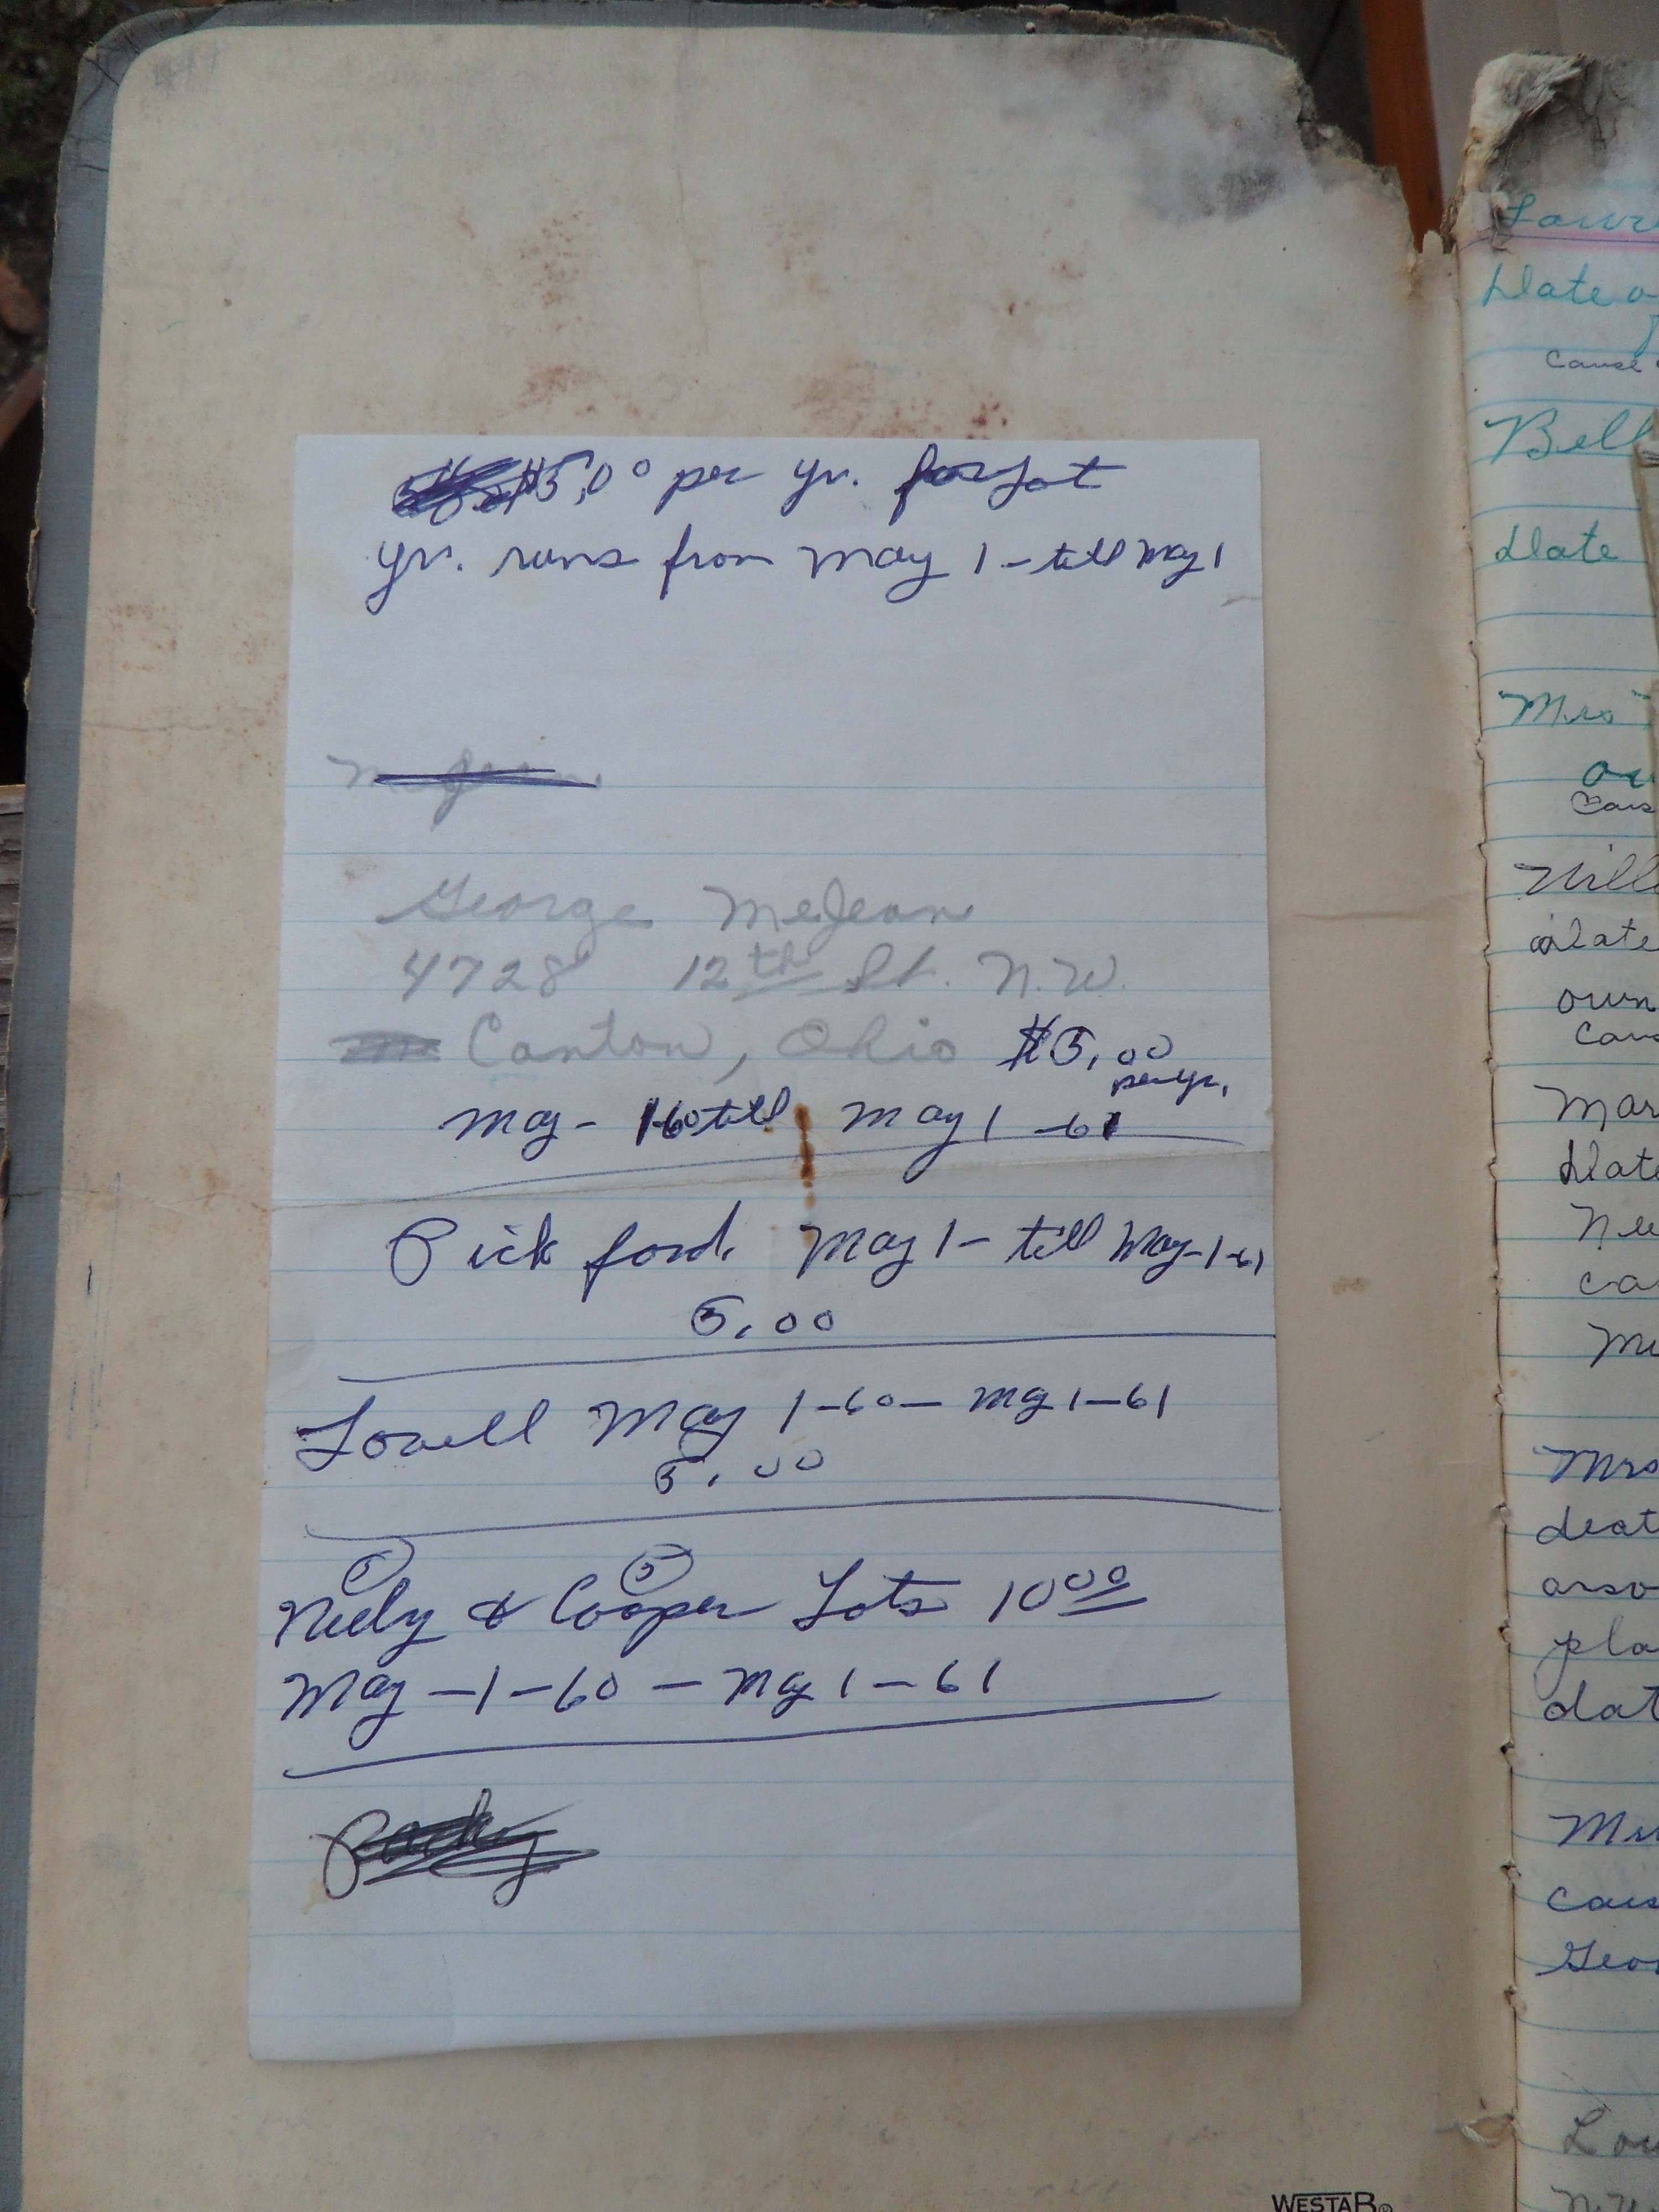 $5.00 per yr. for Lot
yr. runs from May 1 - till May 1
George McJean
4728 12th St. N.W.
Canton, Ohio $5.00
per yr.
May - 1-60 till May 1 - 61
Pickford. May 1 - till May - 1-61
5.00
Lowell May 1-60 - May 1-61
5.00
5 5
Neely & Cooper Lots 10 00
May - 1 - 60 - May 1 - 61
Date
cause
Bell
Date
Mrs
Will
date
own
Date
Mrs
WESTAB®